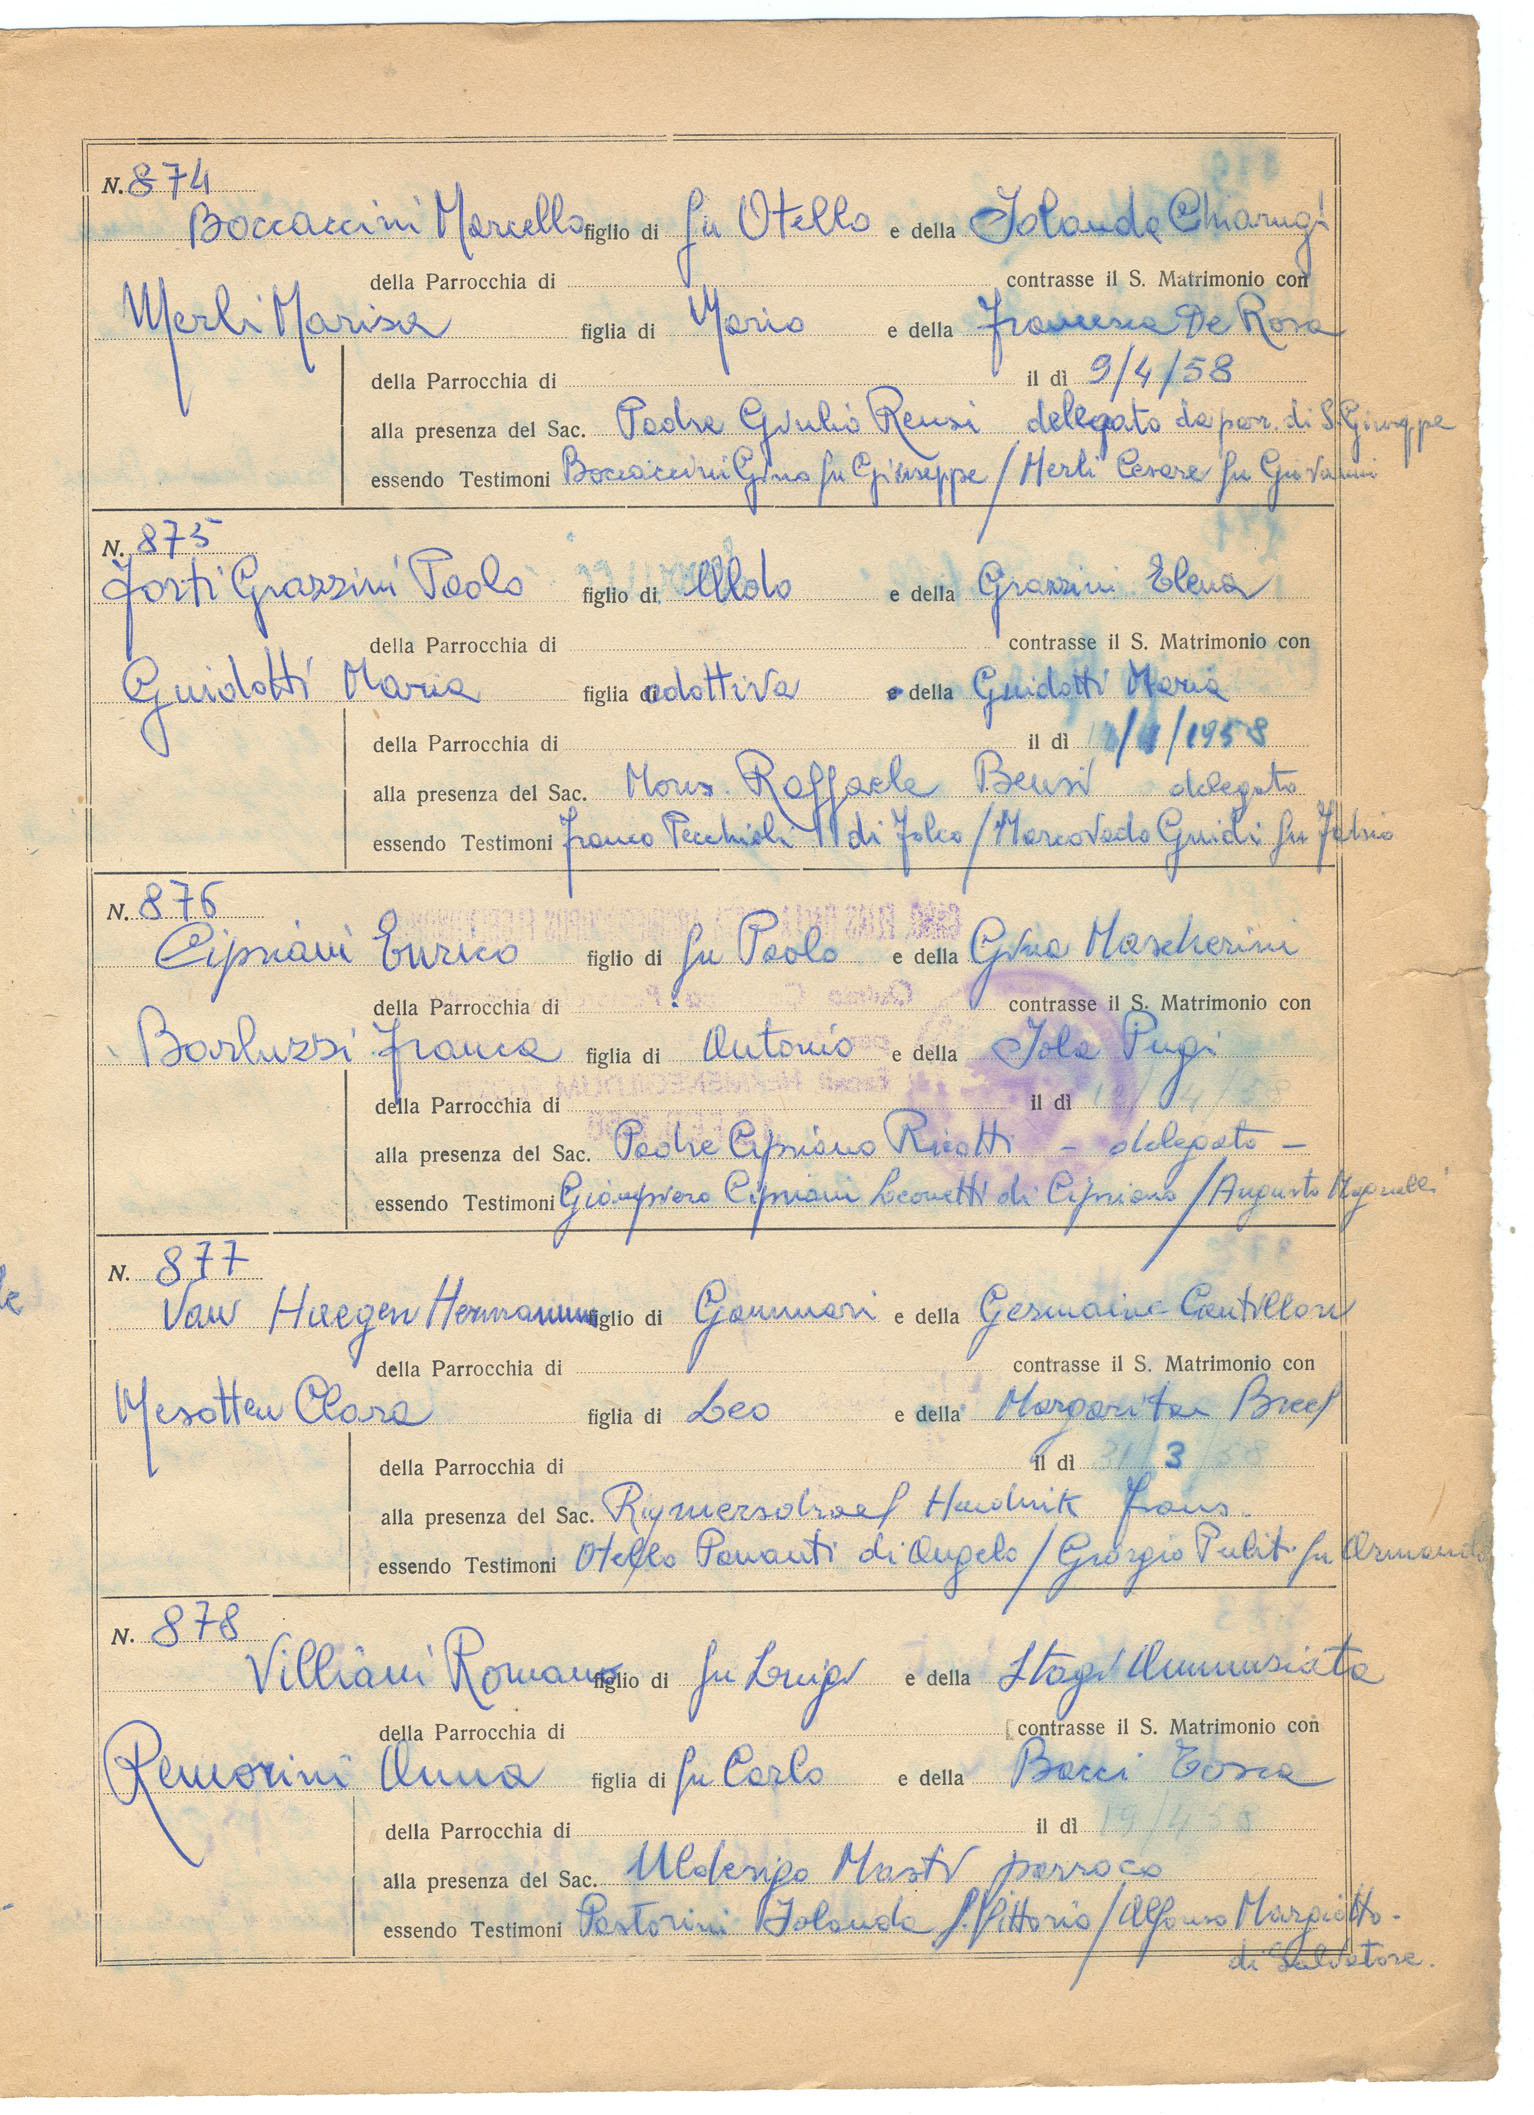 N. 874
Boccaccini Marcello figlio di fu Otello e della Iolanda Chiarugi
della Parrocchia di contrasse il S. Matrimonio con
Merli Marisa figlia di Mario e della Francesca De Rosa
della Parrocchia di il dì 9/4/58
alla presenza del Sac. Padre Giulio Rensi delegato da par. di S. Giuseppe
essendo Testimoni Boccaccini Gino fu Giuseppe / Merli Cesare fu Giovanni
N. 875
Forti Grazzini Paolo figlio di Aldo e della Grazzini Elena
della Parrocchia di contrasse il S. Matrimonio con
Guidotti Maria figlia di adottiva e della Guidotti Maria
della Parrocchia di il dì /1958
alla presenza del Sac. Mons. Raffaele Bensi delegato
essendo Testimoni Franco Pecchioli di Folco / Marcovado Guidi fu
N. 876
Cipriani Enrico figlio di fu Paolo e della Gina Mascherini
della Parrocchia di contrasse il S. Matrimonio con
Barluzzi Franca figlia di Antonio e della Iola Pugi
della Parrocchia di il dì 12/4/58
alla presenza del Sac. Padre Cipriano Ricotti – delegato –
essendo Testimoni Giampiero Cipriani Leonetti di Cipriano / Augusto Magnelli
N. 877
Van Haegen Hermann figlio di Gommari e della Germaine Cantillon
della Parrocchia di contrasse il S. Matrimonio con
Mesotten Clara figlia di Leo e della Margariten
della Parrocchia di il dì 31/3/58
alla presenza del Sac. Hendrik Frans.
essendo Testimoni Otello Pananti di Angelo / Giorgio Puliti fu Armando
N. 878
Villiani Romano figlio di fu Luigi e della Stagi Annunsiata
della Parrocchia di contrasse il S. Matrimonio con
Remorini Anna figlia di fu Carlo e della Bacci Tosca
della Parrocchia di il dì 19/4 58
alla presenza del Sac. Masti parroco
essendo Testimoni Pastorini Iolanda f. Vittorio / Alfonso Margiotta -
di Salvatore.